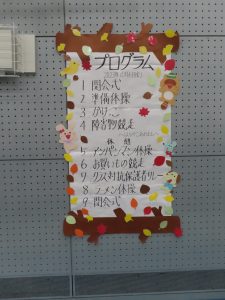 プログラム
1 開会式
2 準備体操
3 かけっこ
4 障害物競走
休憩
5 アンパンマン体操
6 お買いもの競走
7 クラス対抗保護者リレー
8 ラーメン体操
9 閉会式